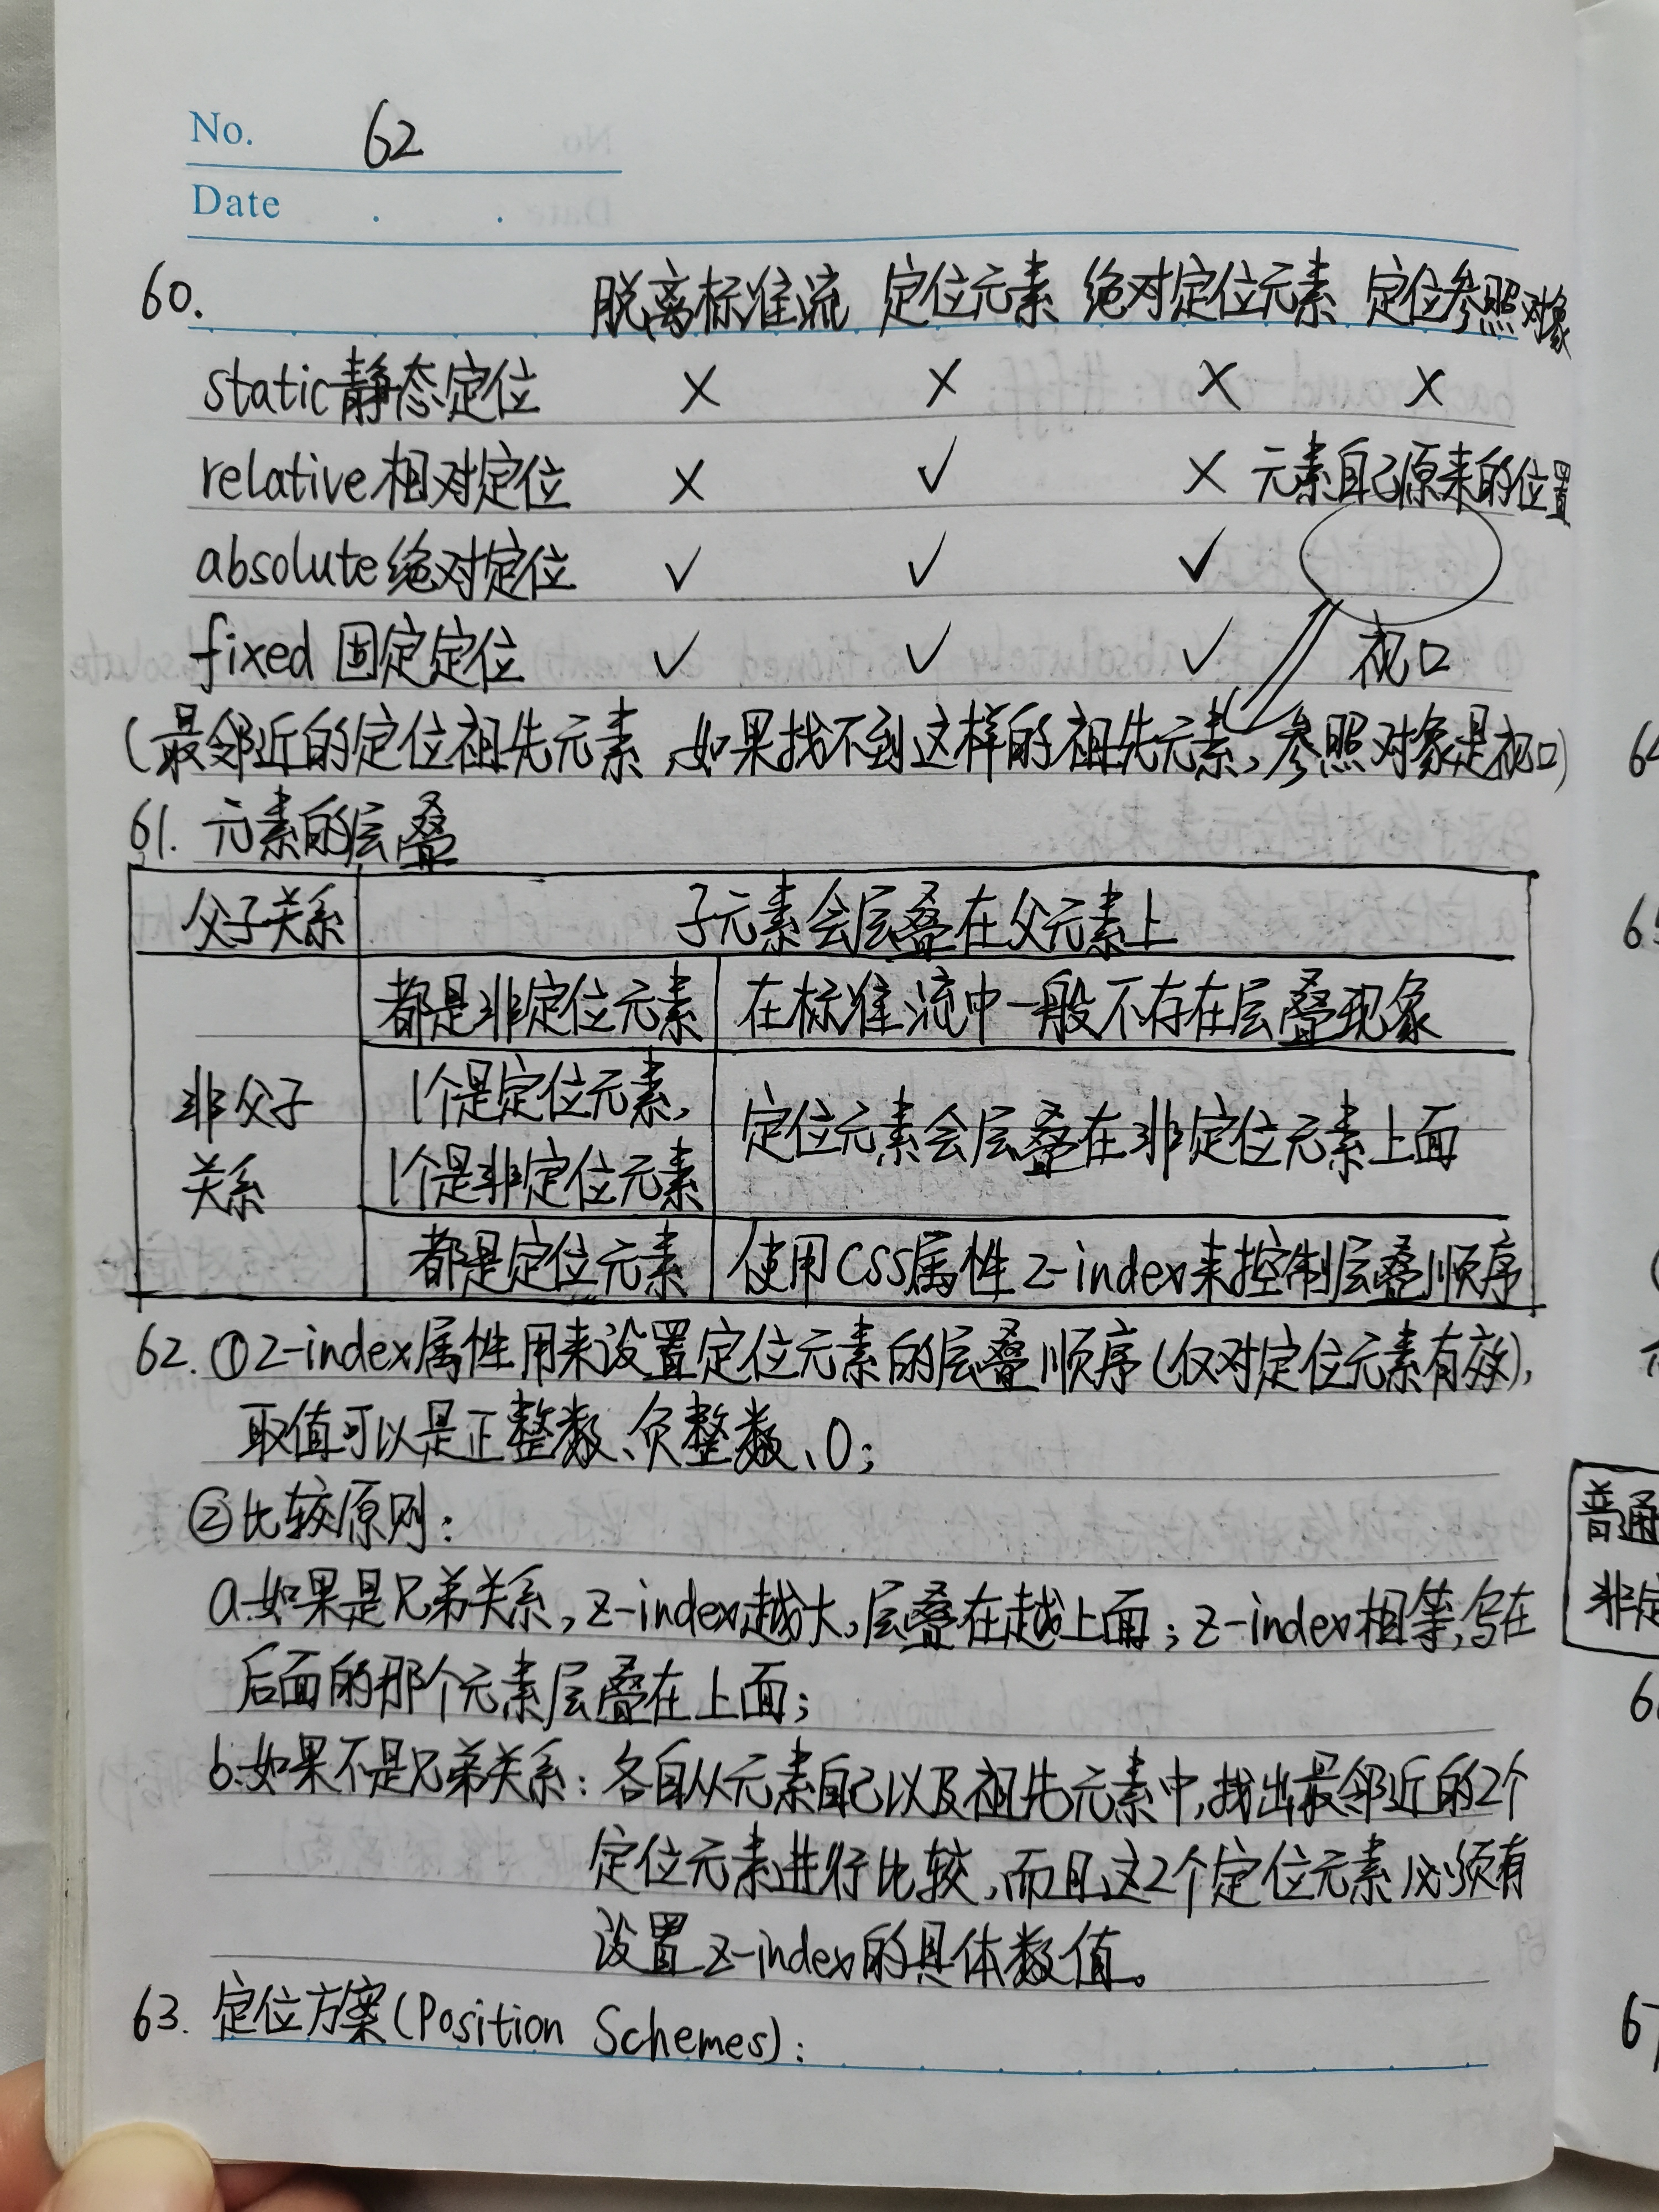 No. 62
Date
60. 脱离标准流 定位元素 绝对定位元素 定位参照对象
static静态定位 × × × ×
relative相对定位 × ✓ × 元素自己原来的位置
absolute绝对定位 ✓ ✓ ✓
fixed 固定定位 ✓ ✓ ✓ 视口
(最邻近的定位祖先元素,如果找不到这样的祖先元素,参照对象是视口)
61. 元素的层叠
父子关系 子元素会层叠在父元素上
都是非定位元素 在标准流中一般不存在层叠现象
非父子
关系
1个是定位元素,
1个是非定位元素
定位元素会层叠在非定位元素上面
都是定位元素 使用CSS属性z-index来控制层叠顺序
62. ①z-index属性用来设置定位元素的层叠顺序(仅对定位元素有效),
取值可以是正整数、负整数、0;
②比较原则:
a.如果是兄弟关系,z-index越大,层叠在越上面;z-index相等,写在
后面的那个元素层叠在上面;
b.如果不是兄弟关系:各自从元素自己以及祖先元素中,找出最邻近的2个
定位元素进行比较,而且这2个定位元素必须有
设置z-index的具体数值。
63. 定位方案(Position Schemes):
普通
非定